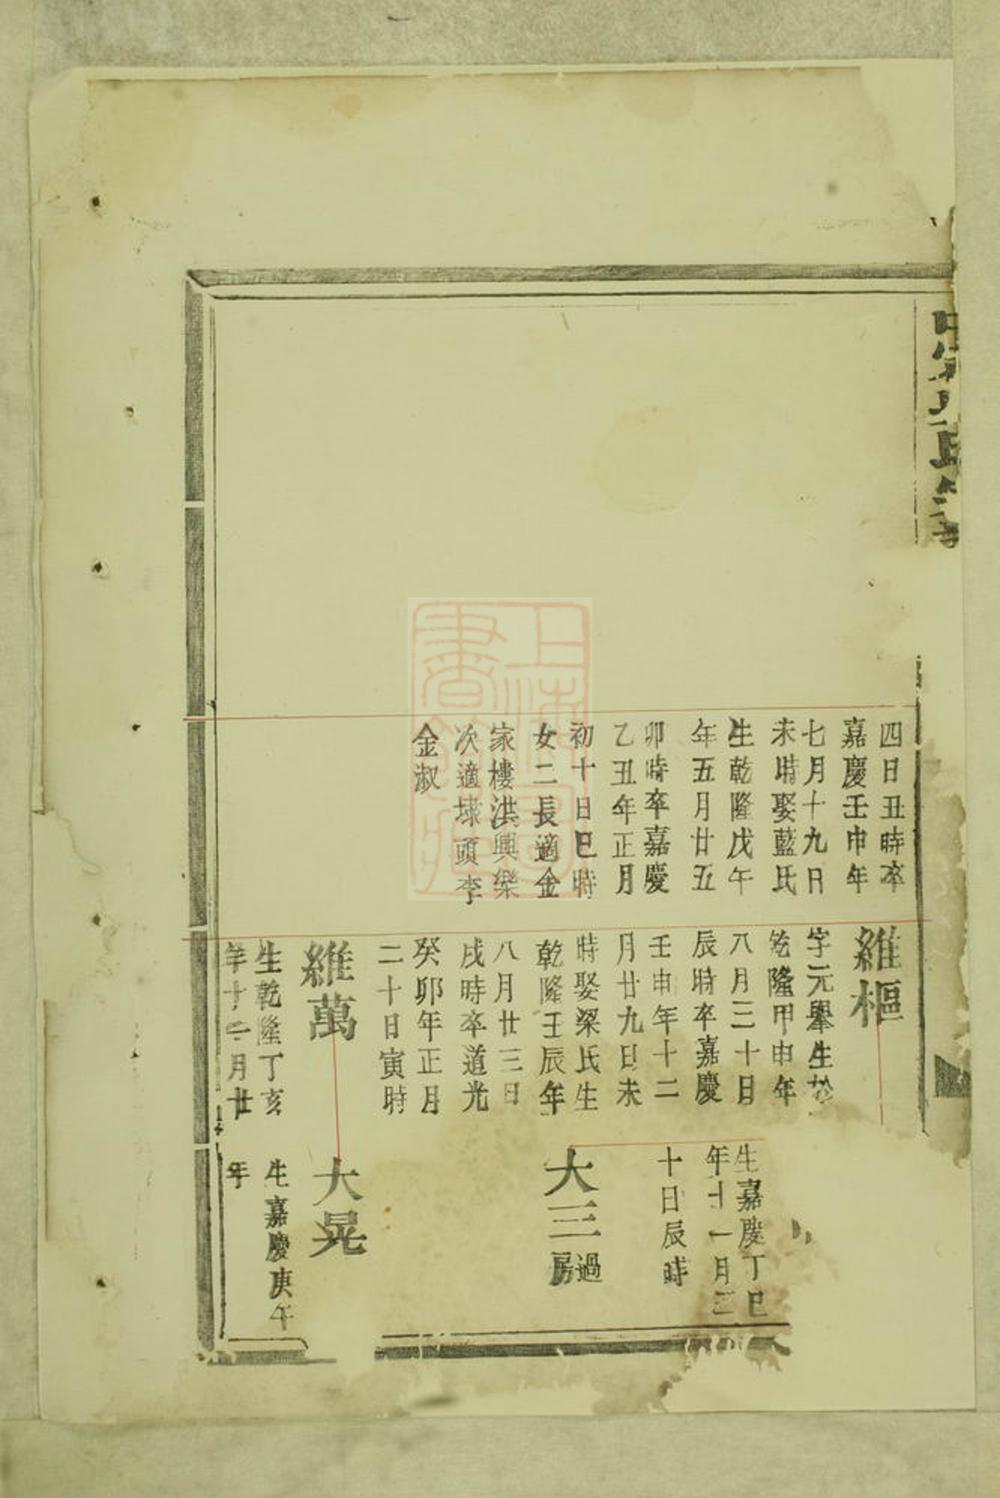 四日丑時卒
嘉慶壬申年
七月十九日
未時娶藍氏
生乾隆戊午
年五月廿五
卯時卒嘉慶
乙丑年正月
初十日巳時
女二長適金
家樓洪興樂
次適埭頭李
金淑
維樞
字元舉生於
乾隆甲申年
八月三十日
辰時卒嘉慶
壬申年十二
月廿九日未
時娶梁氏生
乾隆壬辰年
八月廿三日
戌時卒道光
癸卯年正月
二十日寅時
維萬
生乾隆丁亥
年十二月廿
生嘉慶丁巳
年十一月三
十日辰時
大三
過
房
大晃
生嘉慶庚午
年
上海圖書館藏